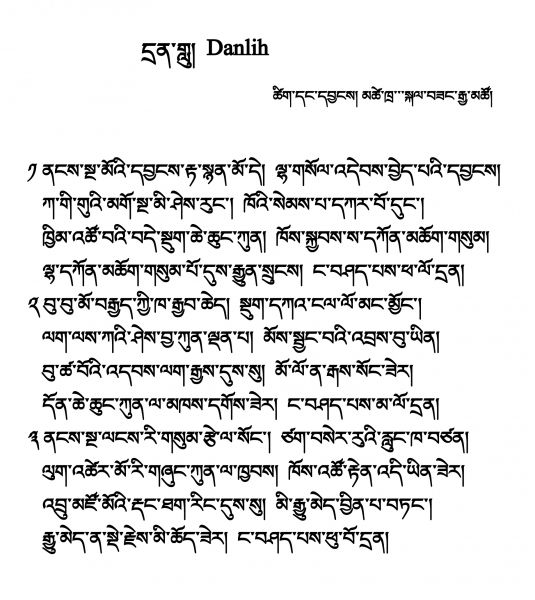 དྲན་གླུ། Danlih
ཚིག་དང་དབྱངས། མཚོ་ཁྲ་་་སྐལ་བཟང་རྒྱ་མཚོ།
༡ ནངས་སྔ་མོའི་དབྱངས་རྟ་སྙན་མོ་དེ། ལྷ་གསོལ་འདེབས་བྱེད་པའི་དབྱངས།
ཀ་གི་གུའི་མགོ་སྔ་མི་ཤེས་རུང་། ཁོའི་སེམས་པ་དཀར་བོ་དུང་།
ཁྱིམ་འཚོ་བའི་བདེ་སྡུག་ཆེ་ཆུང་ཀུན། ཁོས་སྐྱབས་ས་དཀོན་མཆོག་གསུམ།
ལྷ་དཀོན་མཆོག་གསུམ་པོ་དུས་རྒྱུན་སྲུངས། ང་བཤད་པས་ཕ་ལོ་དྲན།
༢ བུ་བུ་མོ་བརྒྱད་ཀྱི་ཁ་རྒྱབ་ཆེད། སྡུག་དཀའ་ངལ་ལོ་མང་མྱོང་།
ལག་ལས་ཀའི་ཤེས་བྱ་ཀུན་ལྡན་པ། མོས་སྦྱང་བའི་འབྲས་བུ་ཡིན།
བུ་ཚ་བོའི་འདབས་ལག་རྒྱས་དུས་སུ། མོ་ལོ་ན་རྒས་སོང་ཟེར།
དོན་ཆེ་ཆུང་ཀུན་ལ་མཁས་དགོས་ཟེར། ང་བཤད་པས་མ་ལོ་དྲན།
༣ ནངས་སྔ་ལངས་རི་གསུམ་རྩེ་ལ་སོང་། ཙག་བསེར་རུའི་རླུང་ཁ་བཙན།
ལུག་འཚེར་མོ་རི་གཞུང་ཀུན་ལ་ཁྱབས། ཁོས་འཚོ་རྟེན་འདི་ཡིན་ཟེར།
འབྲུ་མཛོ་མོའི་རྡང་ཐག་རིང་དུས་སུ། མི་རྒྱུ་མེད་བྱིན་པ་བཏང་།
རྒྱུ་མེད་ན་སྡེ་རྗེས་མི་ཆོད་ཟེར། ང་བཤད་པས་ཕུ་བོ་དྲན།